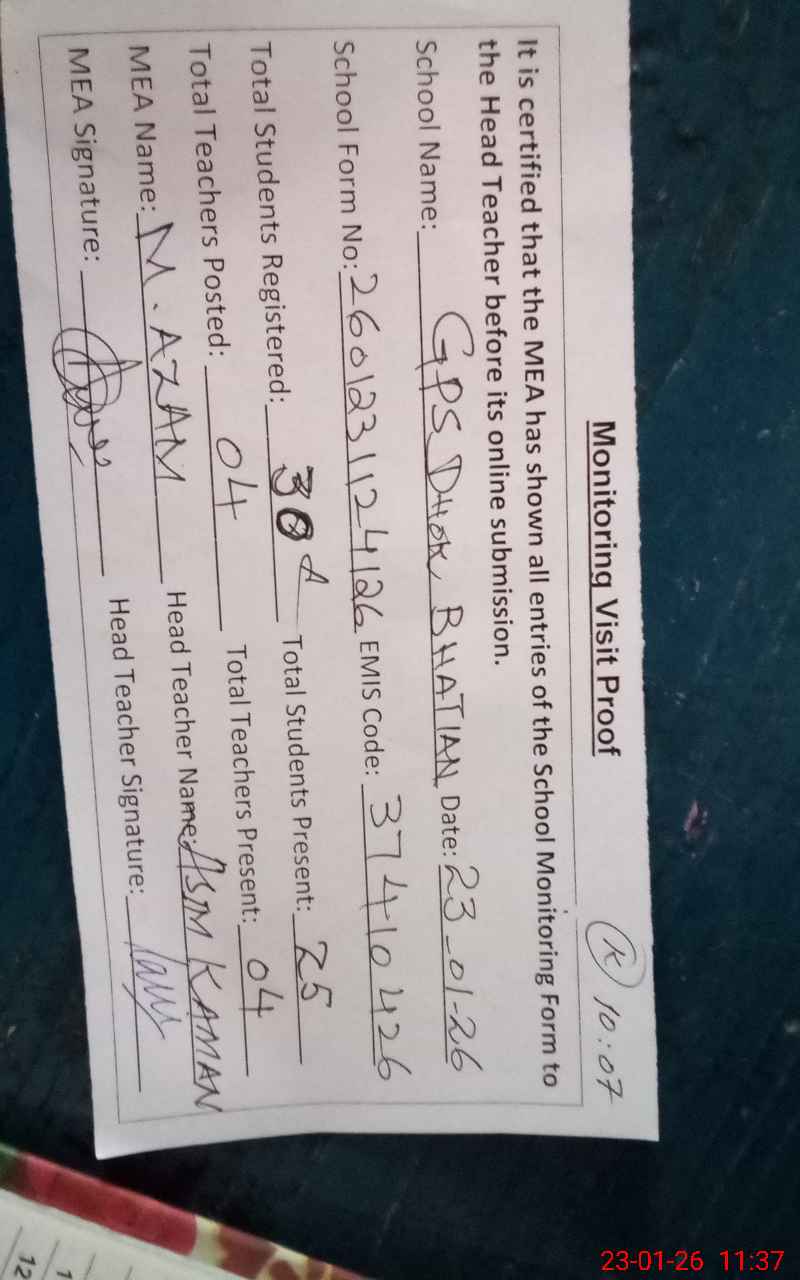 Monitoring Visit Proof
K 10:07
It is certified that the MEA has shown all entries of the School Monitoring Form to
the Head Teacher before its online submission.
School Name: GPS DHOK BHATIAN Date: 23-01-26
School Form No: 2601231124126 EMIS Code: 37410426
Total Students Registered: 30 Total Students Present: 25
Total Teachers Posted: 04 Total Teachers Present: 04
MEA Name: M. AZAM Head Teacher Name: ASIM KAMAN
MEA Signature: Head Teacher Signature:
12
23-01-26 11:37